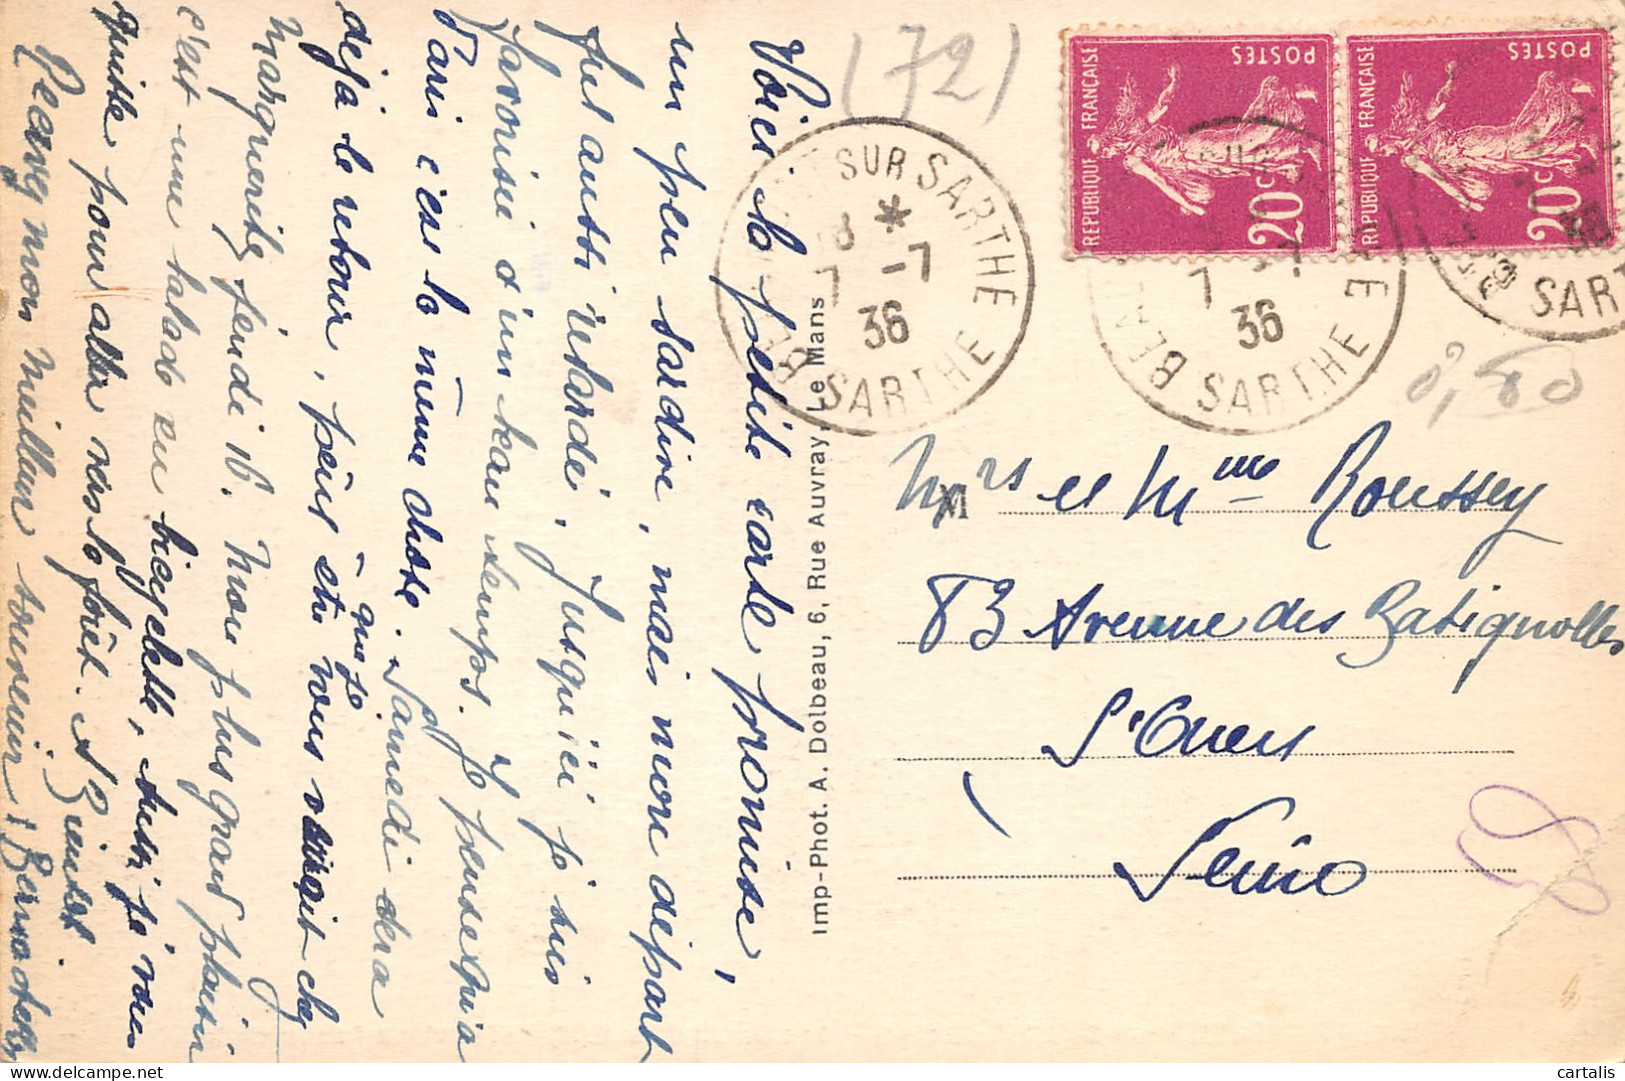 Voici la petite carte promise,
un peu tardive, mais mon départ
fut aussi retardé. Jusqu'ici je suis
favorisé d'un beau temps. Je pense qu'à
Paris c'est la même chose. Samedi sera
déjà le retour, peut être vous verrait chez
que je
Marguerite jeudi 16. Mon plus grand plaisir
c'est une balade en bicyclette, aussi je vous
quitte pour aller vers la forêt. A Bientôt
Recevez mon meilleur souvenir, Bernadette
Imp-Phot. A. Dolbeau, 6, Rue Auvray - Le Mans
(72)
SUR SARTHE
* 
7 -7
36
SARTHE
BEA
7 -7
36
SARTHE
SARTHE
REPUBLIQUE FRANÇAISE
POSTES
20c
REPUBLIQUE FRANÇAISE
POSTES
20c
0,80
M
Mrs et Mme Roussey
83 Avenue des Batignolles
St Ouen
Seine
cartalis